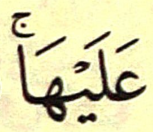 عَلَيْهَاۚ